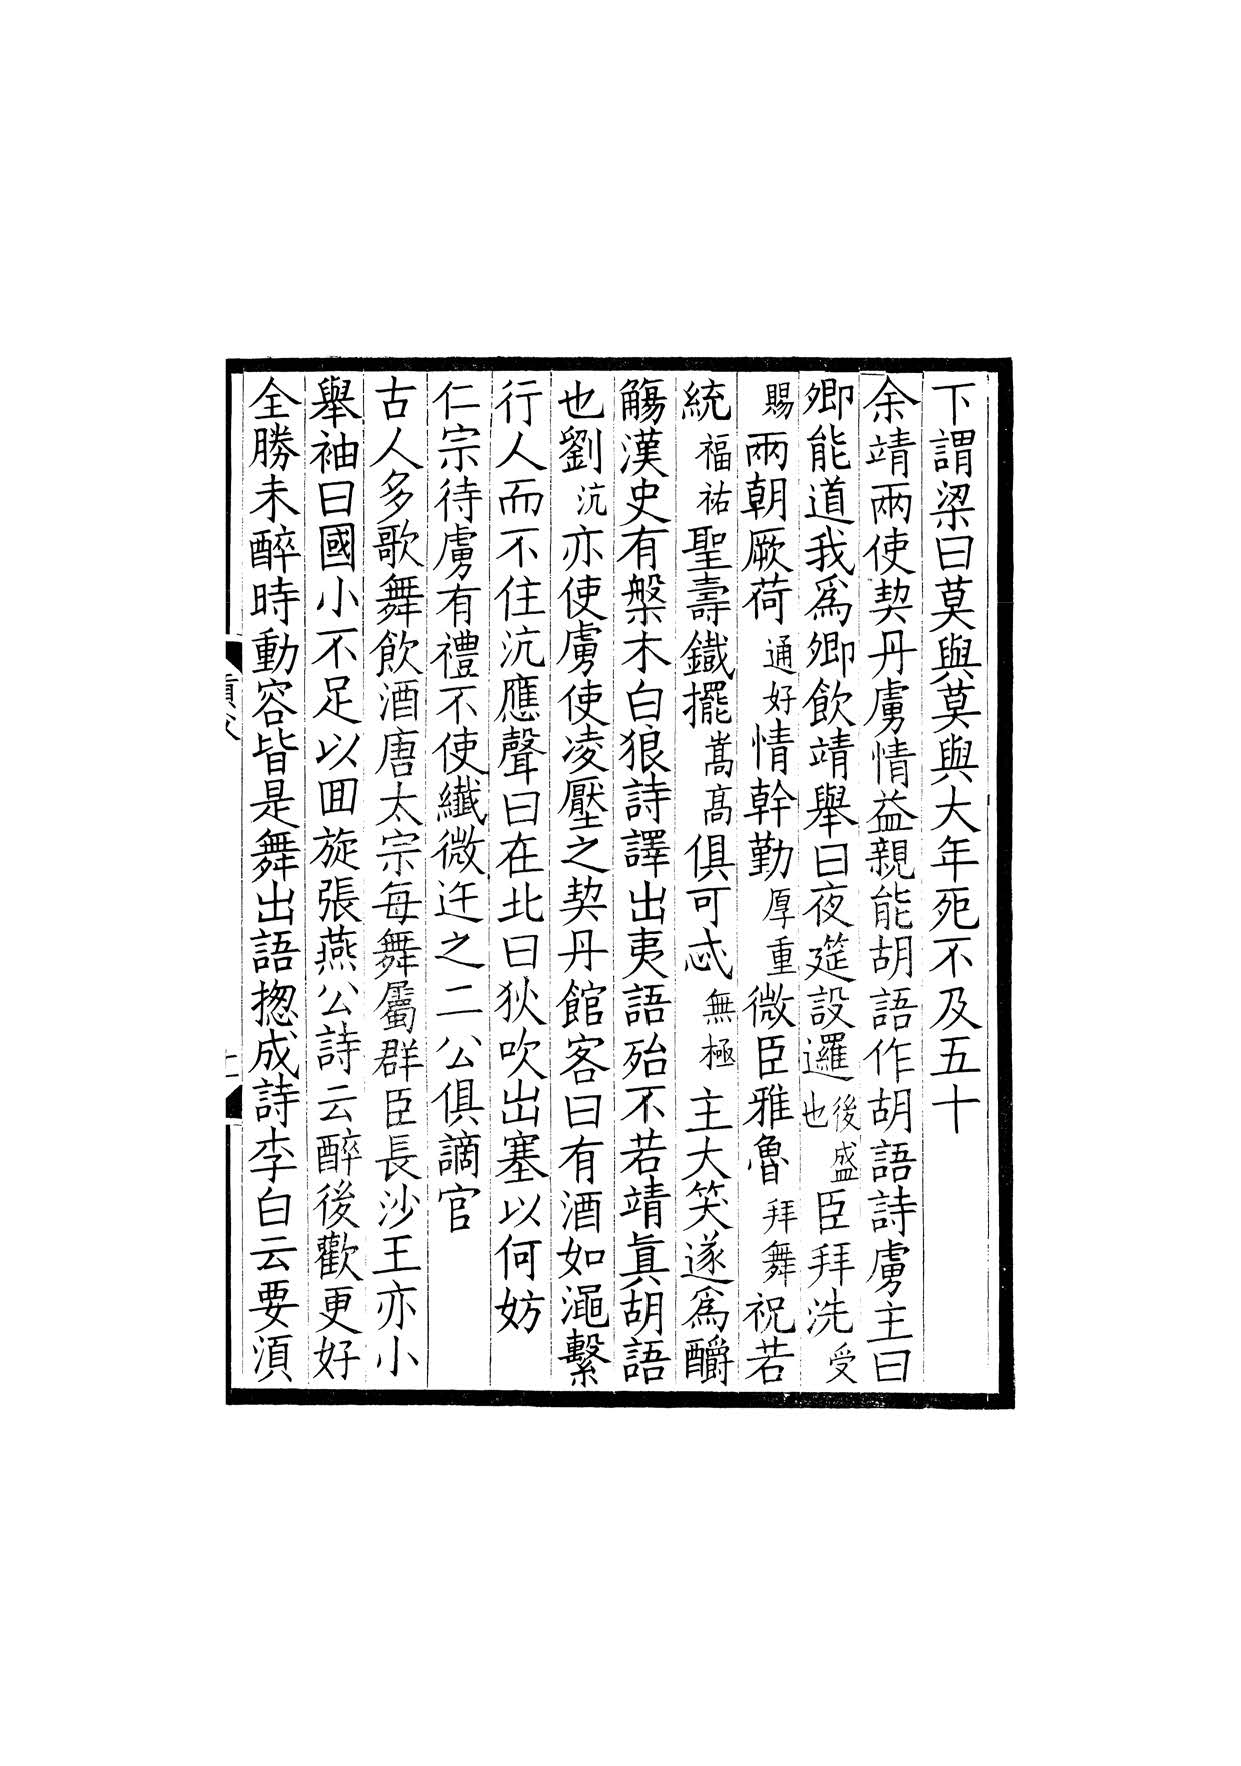 下謂梁曰莫與莫與大年死不及五十
余靖兩使契丹虜情益親能胡語作胡語詩虜主曰
卿能道我爲卿飲靖舉曰夜筵設邏後盛也臣拜洗受
賜兩朝厥荷通好情幹勤厚重微臣雅魯拜舞祝若
統福祐聖壽鐵擺嵩高俱可忒無極主大笑遂爲釂
觴漢史有槃木白狼詩譯出夷語殆不若靖眞胡語
也劉沆亦使虜使凌壓之契丹館客曰有酒如澠繫
行人而不住沆應聲曰在北曰狄吹出塞以何妨
仁宗待虜有禮不使纖微迕之二公俱謫官
古人多歌舞飲酒唐太宗每舞屬群臣長沙王亦小
舉袖曰國小不足以囬旋張燕公詩云醉後歡更好
全勝未醉時動容皆是舞出語揔成詩李白云要湏